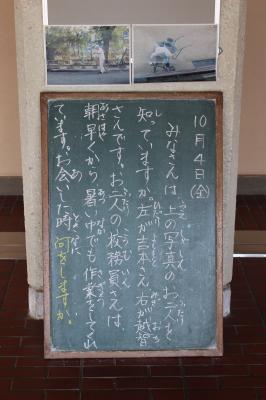 10月4日(金)
みなさんは上の写真のお二人を
知っていますか。左が吉本さん、右が越智
さんです。お二人の校務員さんは、
朝早くから暑い中でも作業をして下さっ
ています。お会いした時、何をしますか。